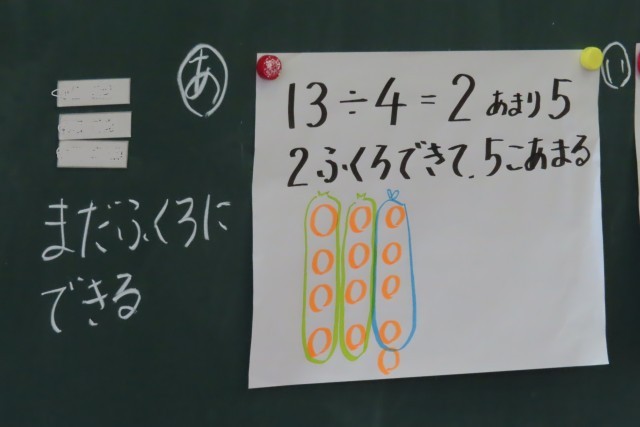 あ
い
13÷4=2あまり5
2ふくろできて、5こあまる
まだふくろに
できる